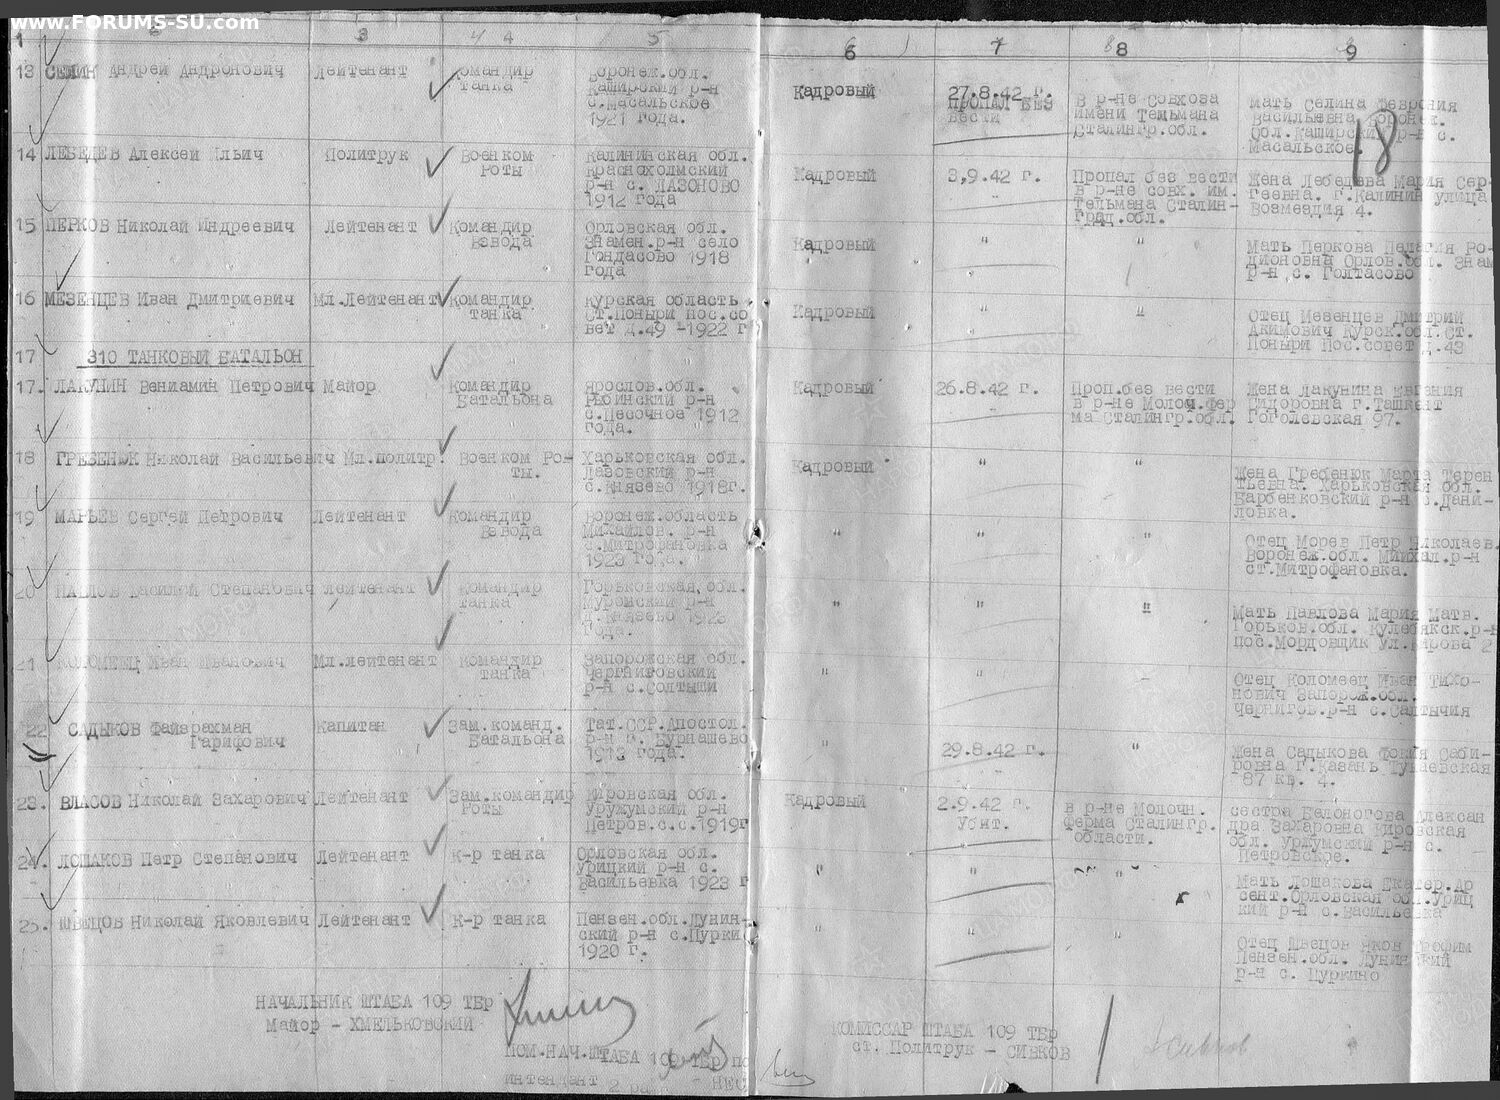 www.FORUMS-SU.com
1 2 3 4 5 6 7 8 9
18
13 СЕЛИН Андрей Андронович Лейтенант Командир танка Воронеж.обл. Каширский р-н с.Масальское 1921 года. Кадровый 27.8.42 г. ПРОПАЛ БЕЗ вести В р-не Совхоза имени Тельмана Сталингр.обл. Мать Селина Феврония Васильевна Воронеж. Обл.Каширский р-н с. Масальское
14 ЛЕБЕДЕВ Алексей Ильич Политрук Военком роты Калининская обл. Краснохолмский р-н с. ЛАЗОНОВО 1912 года Кадровый 3,9.42 г. Пропал без вести в р-не совх. им. Тельмана Сталин-град.обл. Жена Лебедева Мария Сер-геевна. г.Калинин улица Возмездия 4.
15 ПЕРКОВ Николай Индреевич Лейтенант Командир Взвода Орловская обл. Знамен.р-н село Гондасово 1918 года Кадровый " " Мать Перкова Пелагия Ро-дионовна Орлов.обл. Знам р-н с. Голтасово
16 МЕЗЕНЦЕВ Иван Дмитриевич Мл.Лейтенант Командир танка Курская область Ст.Поныри пос.со вет д.49 -1922 г Кадровый " " Отец Мезенцев Дмитрий Акимович Курск.обл.Ст. Поныри Пос.совет д.43
17 310 ТАНКОВЫЙ БАТАЛЬОН
17. ЛАКУНИН Вениамин Петрович Майор Командир Батальона Ярослов.обл. Рыбинский р-н с.Песочное 1912 года. Кадровый 26.8.42 г. Проп.без вести в р-не Молоч.фер ма Сталингр.обл. Жена Лакунина Евгения Сидоровна г.Ташкент Гоголевская 97.
18 ГРЕБЕНЮК Николай Васильевич Мл.политр. Военком Ро-ты. Харьковская обл. Лазовский р-н с.Князево 1918г. Кадровый " " Жена Гребенюк Марта Терен тьевна. Харьковская обл. Барбенковский р-н с.Дани-ловка.
19 МАРЬЕВ Сергей Петрович Лейтенант Командир Взвода Воронеж.область Михайлов. р-н с.Митрофановка 1923 года. " " " Отец Морев Петр Николаев. Воронеж.обл. Миихал.р-н ст.Митрофановка.
20 ПАВЛОВ Василий Степанович Лейтенант Командир танка Горьковская,обл. Муромский р-н д.Князево 1923 года. " " " Мать Павлова Мария Матв. Горьков.обл. Кулебякск.р-н пос.Мордовщик ул.Кирова 2
21 КОЛОМЕЕЦ Иван Иванович Мл.лейтенант Командир танка Запорожская обл. Черниговский р-н с.Солтыши " " Отец Коломеец Иван Тихо-нович Запорож.обл. Чернигов.р-н с.Салтычия
22 САДЫКОВ Файзрахман Гарифович Капитан Зам.команд. Батальона Тат.ССР.Апостол. р-н с. Бурнашево 1913 года. " 29.8.42 г. " Жена Садыкова Фония Саби-ровна г.Казань Тукаевская 87 кв. 4.
23. ВЛАСОВ Николай Захарович Лейтенант Зам.командир Роты Кировская обл. Уружумский р-н Петров.с.с.1919г Кадровый 2.9.42 г. Убит. в р-не Молочн. ферма Сталингр. области. сестра Белоногова Алексан дра Захаровна Кировская обл. Уржумский р-н с. Петровское.
24. ЛОШАКОВ Петр Степанович Лейтенант К-р танка Орловская обл. Урицкий р-н с. Васильевка 1923 г " " " Мать Лошакова Екатер.Ар сент.Орловская обл.Уриц кий р-н с.Васильевка
25. ШВЕЦОВ Николай Яковлевич Лейтенант К-р танка Пензен.обл.Лунин-ский р-н с.Пурки 1920 г. " " " Отец Швецов Яков Трофим Пензен.обл. Лунинский р-н с. Пуркино
НАЧАЛЬНИК ШТАБА 109 ТБр
Майор - ХМЕЛЬКОВСКИЙ
КОМИССАР ШТАБА 109 ТБР
ст. Политрук - СИВКОВ
ПОМ.НАЧ.ШТАБА 109 ТБР по
Интендант 2 ран